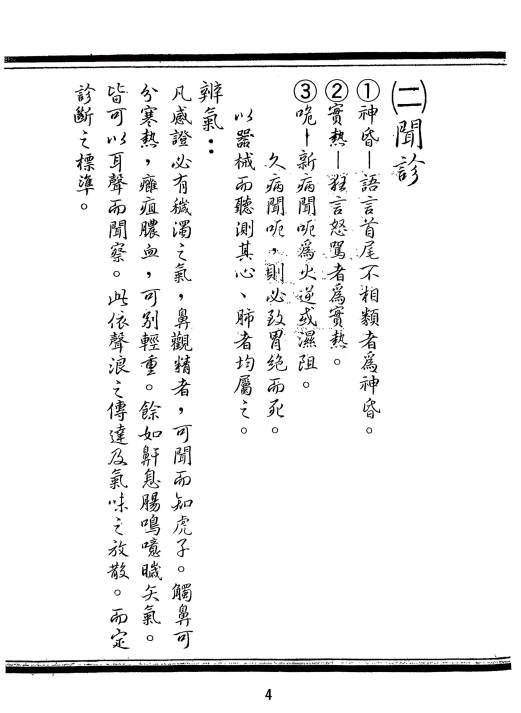 ㈡聞診
①神昏—語言首尾不相類者為神昏。
②實熱—狂言怒罵者為實熱。
③呃—新病聞呃為火逆或濕阻。
久病聞呃，則必致胃絕而死。
以器械而聽測其心、肺者均屬之。
辨氣：
凡感證必有穢濁之氣，鼻觀精者，可聞而知虎子。觸鼻可
分寒熱，癰疽膿血，可別輕重。餘如鼾息腸鳴噫臟矢氣。
皆可以耳聲而聞察。此依聲浪之傳達及氣味之放散。而定
診斷之標準。
4